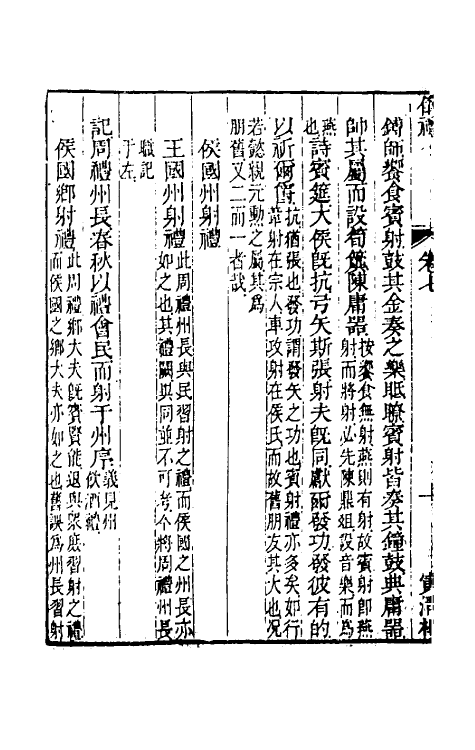 鎛師饗食賓射鼓其金奏之樂眡瞭賓射皆奏其鐘鼓典庸器
帥其屬而設筍簴陳庸器按饗食無射燕則有射故賓射卽燕
射而將射必先陳鼎俎設音樂而爲
燕
也詩賓筵大侯旣抗弓矢斯張射夫旣同獻爾發功發彼有的
以祈爾爵抗猶張也發功謂發矢之功也賓射禮亦多矣如行
葦射在宗人車攻射在侯氏而故舊朋友其大也况
若懿親元勳之屬其爲
朋舊又二而一者哉
侯國州射禮
王國州射禮此周禮州長與民習射之禮而侯國之州長亦
如之也其禮闕與同並不可考今將周禮州長
職記
于左
記周禮州長春秋以禮會民而射于州序義見州
飲酒禮
侯國鄉射禮此周禮鄉大夫旣賓賢能退與衆庶習射之禮
而侯國之鄉大夫亦如之也舊誤爲州長習射